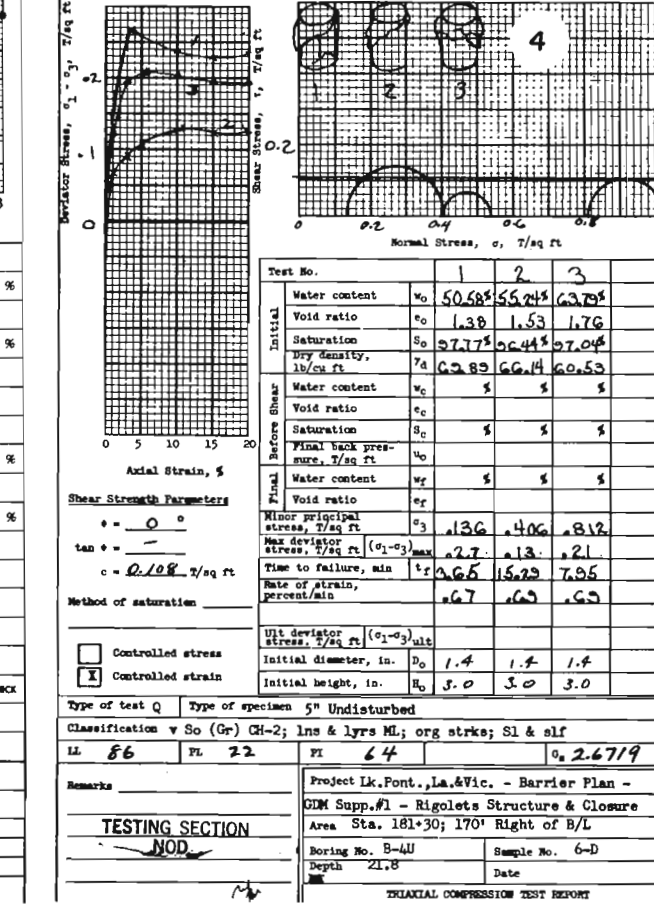 Deviator Stress, σ1 - σ3, T/sq ft
.2
.1
0
1
3
2
0 5 10 15 20
Axial Strain, %
Shear Stress, τ, T/sq ft
0.2
1 2 3
4
0 0.2 0.4 0.6 0.8
Normal Stress, σ, T/sq ft
%
%
%
%
Shear Strength Parameters
φ = 0 °
tan φ = —
c = 0.108 T/sq ft
Method of saturation
Controlled stress
X Controlled strain
Test No. 1 2 3
Initial
Water content wo 50.58% 55.24% 63.79%
Void ratio eo 1.38 1.53 1.76
Saturation So 97.77% 96.44% 97.04%
Dry density, lb/cu ft γd 66.14 60.53
Before Shear
Water content wc % % %
Void ratio ec
Saturation Sc % % %
Final back pressure, T/sq ft uo
Final
Water content wf % % %
Void ratio ef
Minor principal stress, T/sq ft σ3 .136 .406 .812
Max deviator stress, T/sq ft (σ1-σ3)max .27 .13 .21
Time to failure, min tf 3.65 15.29 7.95
Rate of strain, percent/min .67 .69 .69
Ult deviator stress, T/sq ft (σ1-σ3)ult
Initial diameter, in. Do 1.4 1.4 1.4
Initial height, in. Ho 3.0 3.0 3.0
Type of test Q Type of specimen 5" Undisturbed
Classification v So (Gr) CH-2; lns & lyrs ML; org strks; Sl & slf
LL 86 PL 22 PI 64 Gs 2.6719
Remarks
TESTING SECTION
NOD
Project Lk.Pont.,La.&Vic. - Barrier Plan -
GDM Supp.#1 - Rigolets Structure & Closure
Area Sta. 181+30; 170' Right of B/L
Boring No. B-4U Sample No. 6-D
Depth 21.8 Date
TRIAXIAL COMPRESSION TEST REPORT